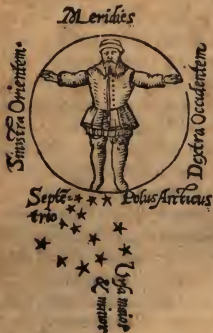 Meridies
Sinistra Orientem.
Dextra Occidentem
Septē- Polus Arcticus
trio
Vrsa maior
& minor